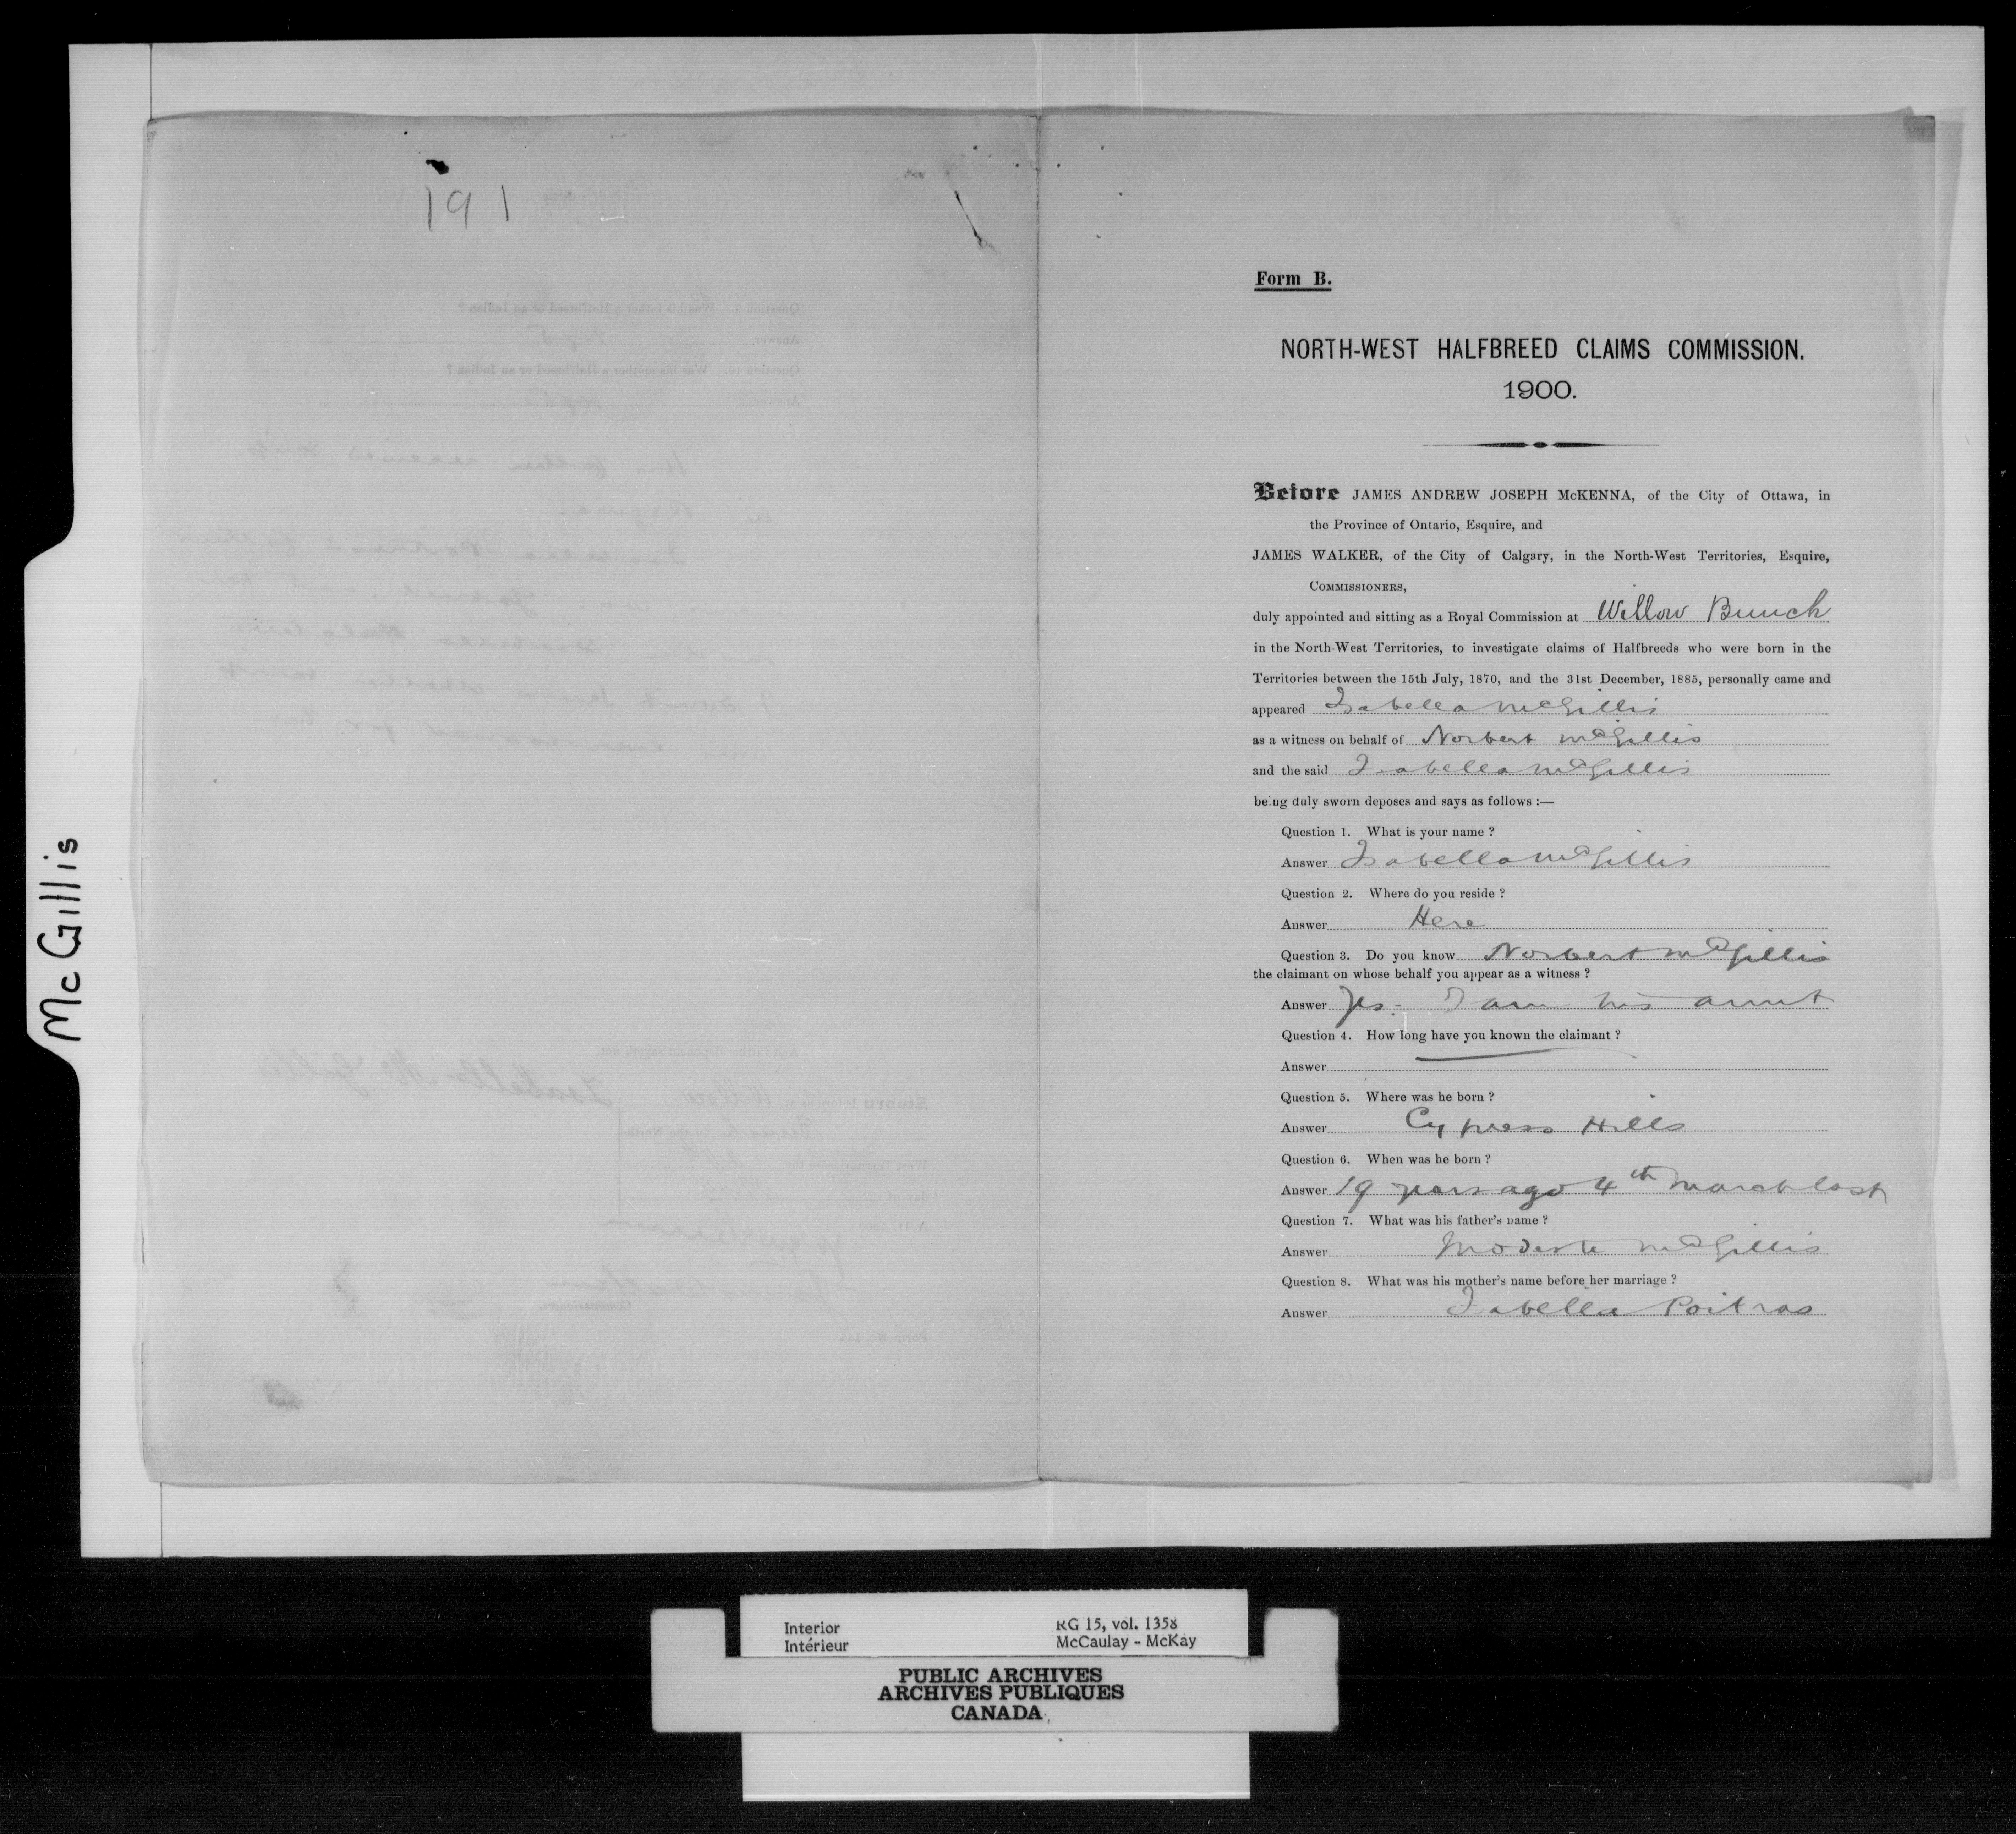 McGillis
191
Form B.
NORTH-WEST HALFBREED CLAIMS COMMISSION.
1900.
Before JAMES ANDREW JOSEPH McKENNA, of the City of Ottawa, in
the Province of Ontario, Esquire, and
JAMES WALKER, of the City of Calgary, in the North-West Territories, Esquire,
COMMISSIONERS,
duly appointed and sitting as a Royal Commission at Willow Bunch
in the North-West Territories, to investigate claims of Halfbreeds who were born in the
Territories between the 15th July, 1870, and the 31st December, 1885, personally came and
appeared Isabella McGillis
as a witness on behalf of Norbert McGillis
and the said Isabella McGillis
being duly sworn deposes and says as follows :—
Question 1. What is your name ?
Answer Isabella McGillis
Question 2. Where do you reside ?
Answer Here
Question 3. Do you know Norbert McGillis
the claimant on whose behalf you appear as a witness ?
Answer Yes - I am his aunt
Question 4. How long have you known the claimant ?
Answer
Question 5. Where was he born ?
Answer Cypress Hills
Question 6. When was he born ?
Answer 19 years ago 4th March last
Question 7. What was his father's name ?
Answer Modeste McGillis
Question 8. What was his mother's name before her marriage ?
Answer Isabella Poitras
Interior
Intérieur
RG 15, vol. 1358
McCaulay - McKay
PUBLIC ARCHIVES
ARCHIVES PUBLIQUES
CANADA